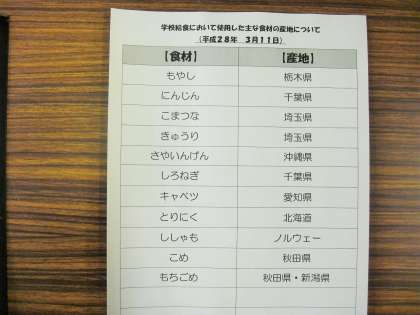 学校給食において使用した主な食材の産地について
（平成28年 3月11日）
【食材】 【産地】
もやし 栃木県
にんじん 千葉県
こまつな 埼玉県
きゅうり 埼玉県
さやいんげん 沖縄県
しろねぎ 千葉県
キャベツ 愛知県
とりにく 北海道
ししゃも ノルウェー
こめ 秋田県
もちごめ 秋田県・新潟県